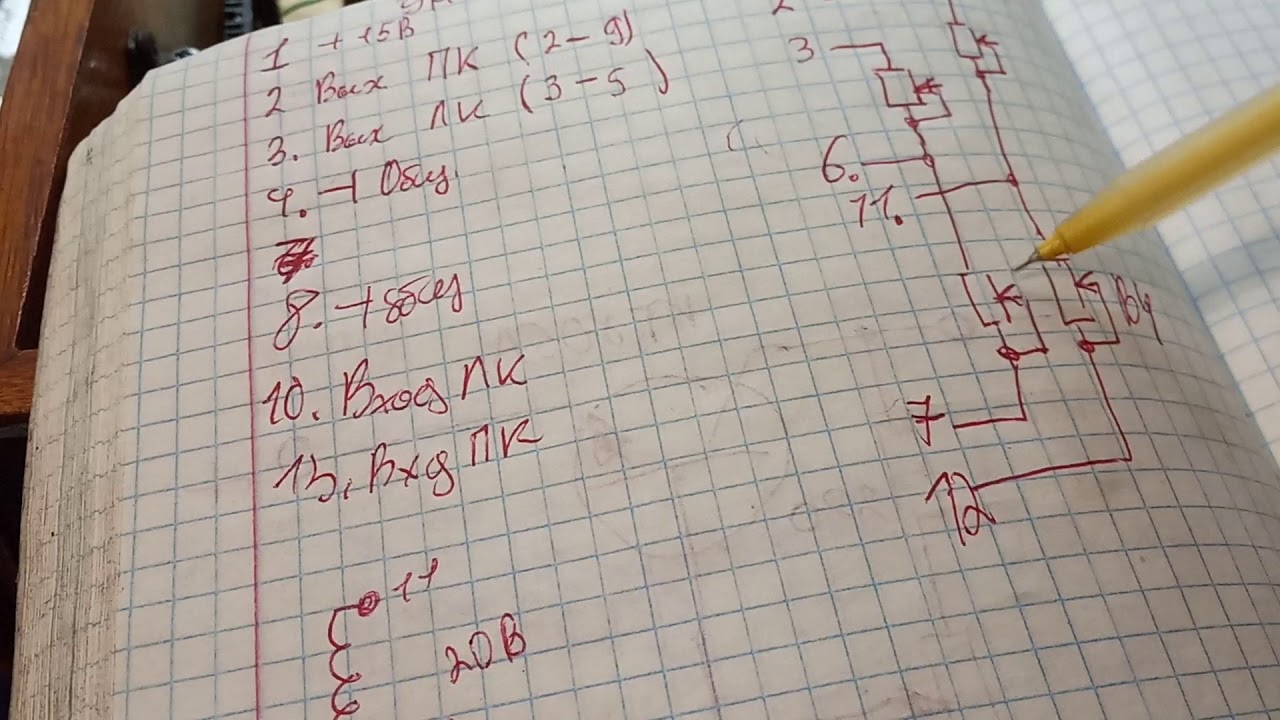 1 + 15В
2 Вых ПК (2-9)
3. Вых ЛК (3-5)
4. ⊣ Общ
8. ⊣ общ
10. Вход ЛК
13. Вхд ПК
11
20В
3
6.
11.
ВЧ
7
12